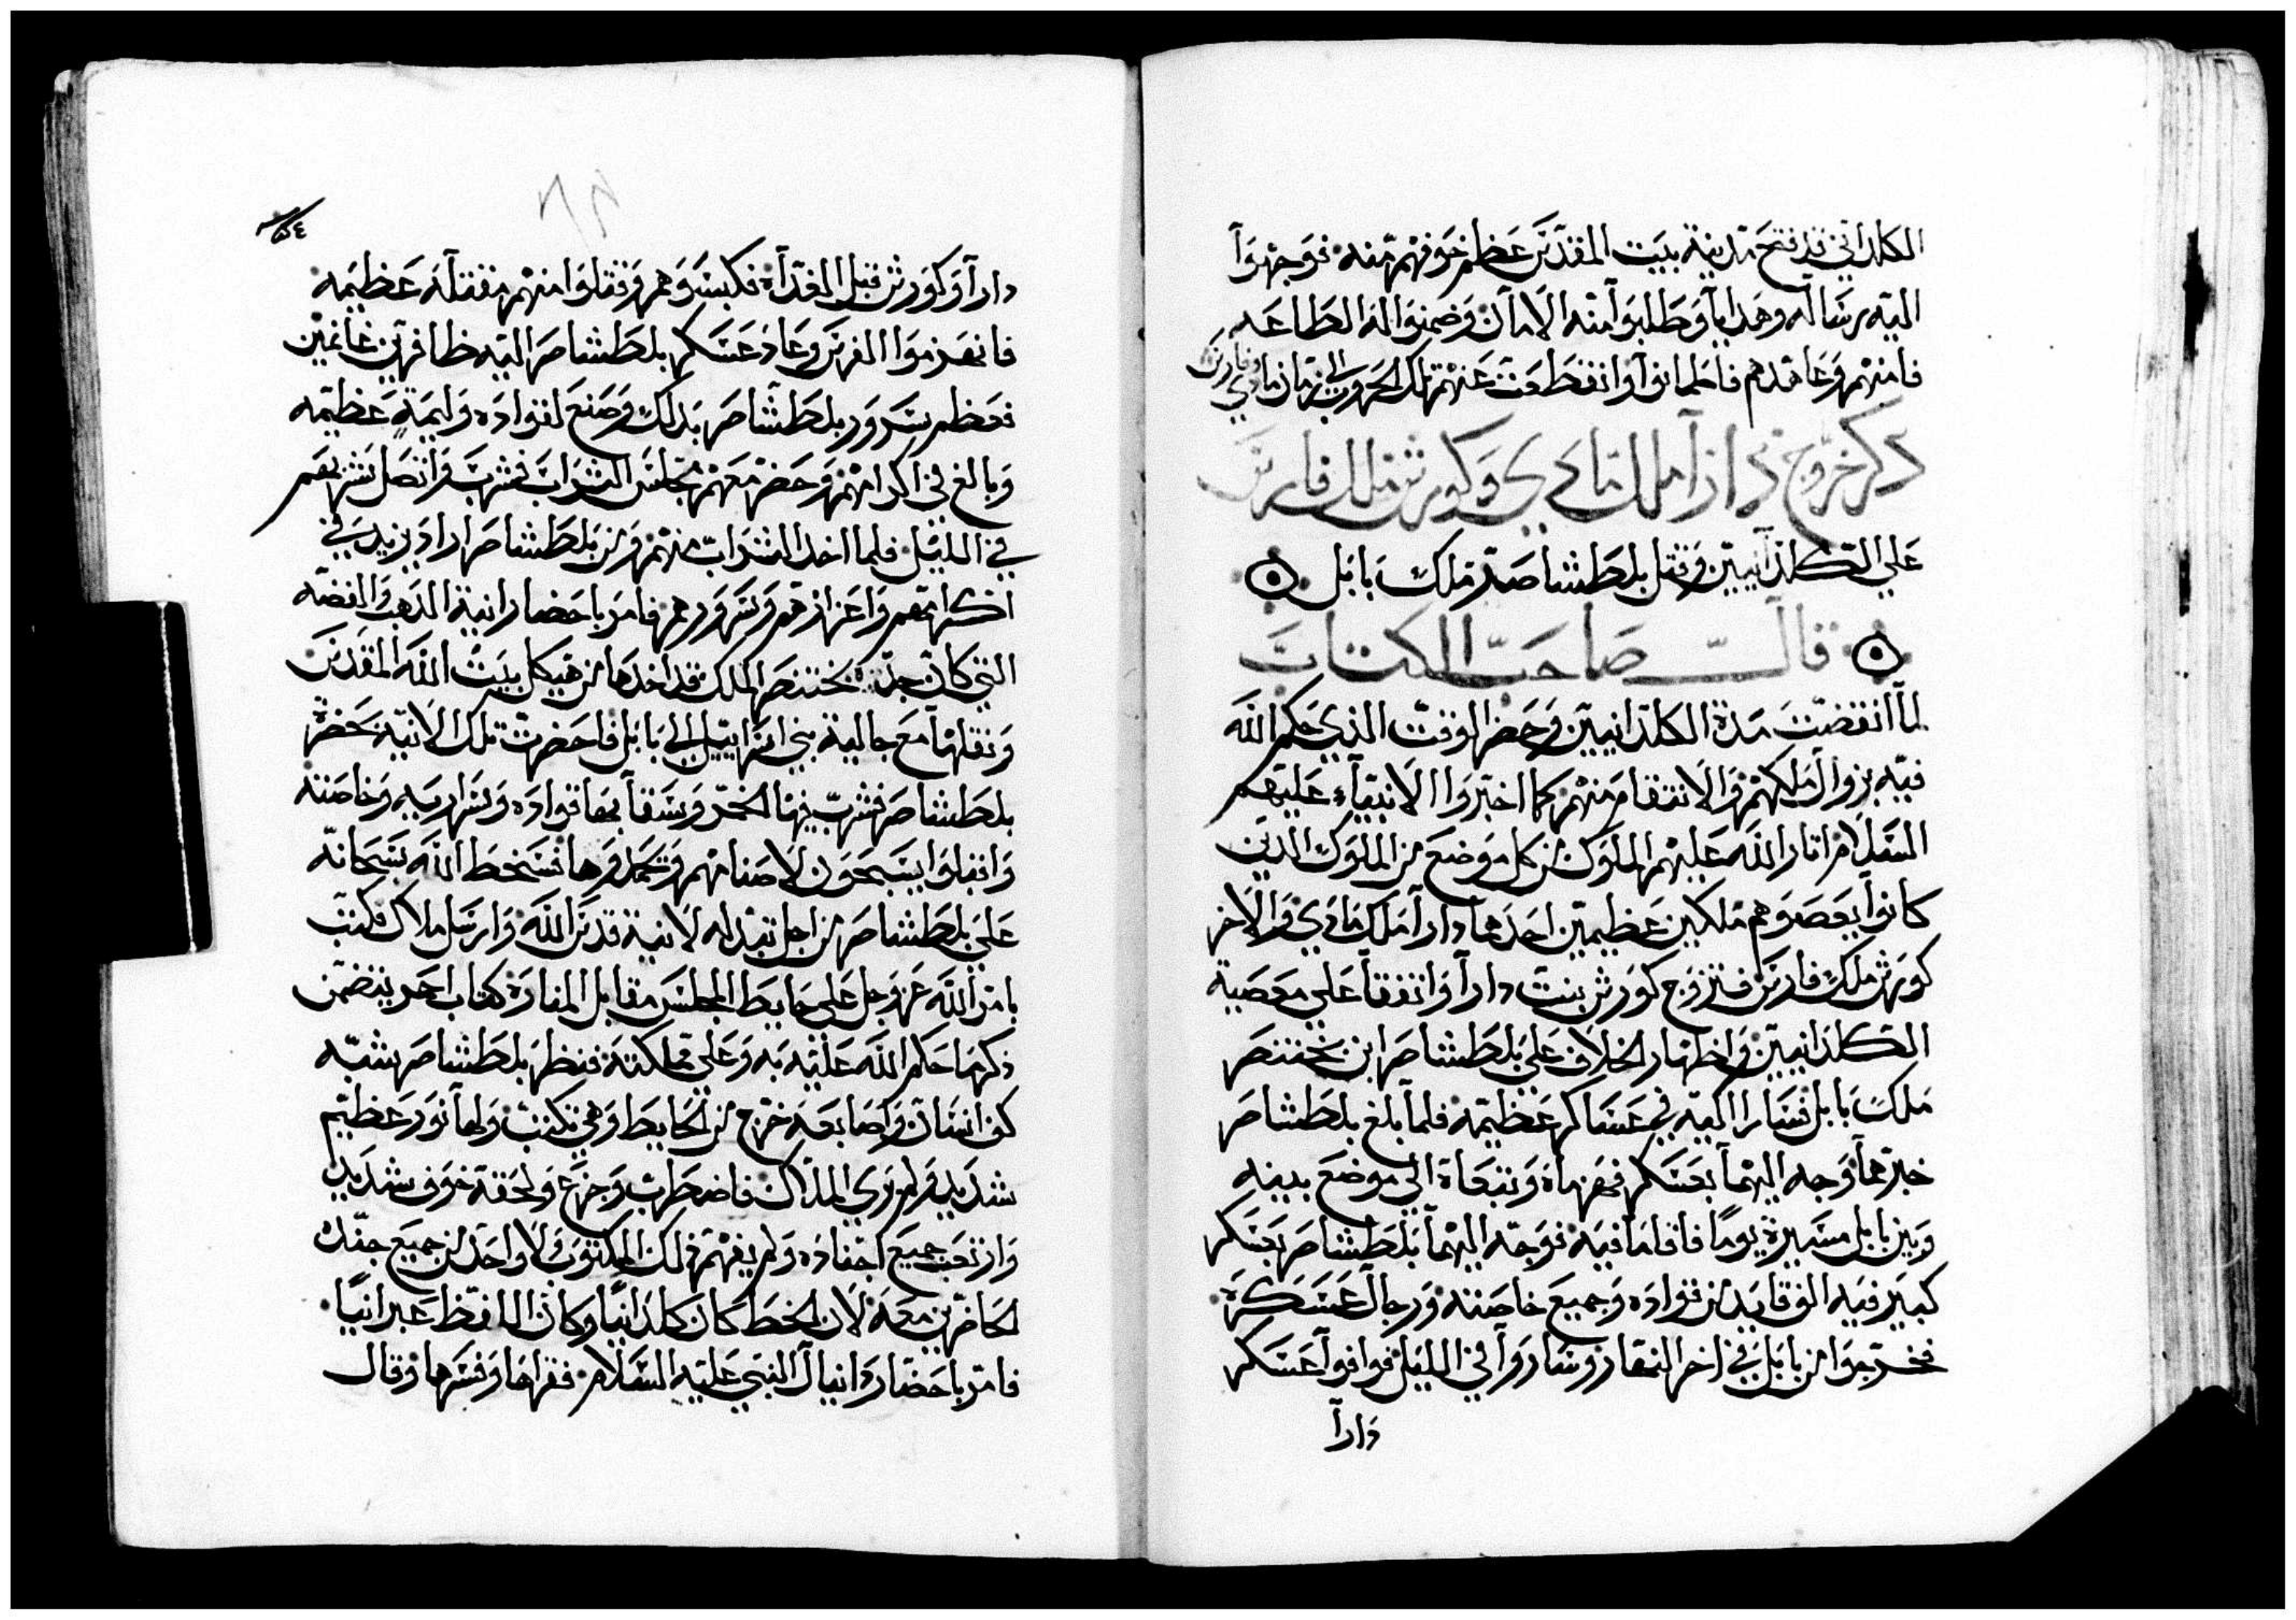 الكلداني قد فتح مدينة بيت المقدس عظم خوفهم منه فوجهوا
اليه رساله وهدايا وطلبوا منه الامان وضمنوا له الطاعه
فامنهم وعاهدهم فاطمانوا وانقطعت عنهم تلك الحروب الي زمان مادي وفارس
ذكر خروج دارا ملك مادي وكورش ملك فارس
علي الكلدانيين وقتل بلطشاصر ملك بابل
قال صاحب الكتاب
لما انقضت مدة الكلدانيين وحضر الوقت الذي حكم الله
فيه بزوال ملكهم والانتقام منهم كما اخبروا الانبياء عليهم
السلام اثار الله عليهم الملوك من كل موضع من الملوك الدين
كانوا يعصوهم ملكين عظيمين احدهما دارا ملك مادي والاخر
كورش ملك فارس فتزوج كورش بنت دارا واتفقا علي معصية
الكلدانيين واظهار الخلاف علي بلطشاصر ابن بختنصر
ملك بابل فسارا اليه في عساكر عظيمه فلما بلغ بلطشاصر
خبرهما وجه اليهما بعسكر فهزماه وتبعاه الي موضع بينه
وبين بابل مسيرة يوما فاقاما فيه فوجه اليهما بلطشاصر بعسكر
كبير فيه الف قايد من قواده وجميع خاصته ورجال عسكره
فخرجوا من بابل في اخر النهار وساروا في الليل فوافوا عسكر
دارا
٥٤
دارا وكورش قبل الغداه فكبسوهم وقتلوا منهم مقتله عظيمه
فانهزموا الفرس وعاد عسكر بلطشاصر اليه ظافرين غانمين
فعظم سرور بلطشاصر بدلك وصنع لقواده وليمة عظيمه
وبالغ في اكرامهم وحضر معهم مجلس الشراب فشرب واتصل شربهم
في الليل فلما اخد الشراب منهم ومن بلطشاصر اراد يزيد في
اكرامهم واعزازهم وسرورهم فامر باحضار انية الدهب والفضه
التي كان جده بختنصر الملك قد اخدها من هيكل بيت الله المقدس
ونقلها مع جالية بني اسراييل الي بابل فاحضرت تلك الانيه بحضرة
بلطشاصر فشرب فيها الخمر وسقا بها قواده وسراريه وخاصته
واقبلوا يسبحون لاصنامهم وتحمدوها فسخط الله سبحانه
علي بلطشاصر من اجل تبدله لانية قدس الله وارسل ملاك فكتب
بامر الله عز وجل علي حايط المجلس مقابل المناره كتاب احمر يتضمن
ذكر ما حكم الله عليه به وعلي مملكته فنظر بلطشاصر شبه
كف انسان واصابعه خرج من الحايط وهي تكتب ولها نور عظيم
شديد ولم يري الملاك فاضطرب وجزع ولحقه خوف شديد
وارتعب جميع اجناده ولم يفهم ذلك المكتوب ولا واحد من جميع جنده
الحاضرين معه لان الخط كان كلدانيا وكان اللفظ عبرانيا
فامر باحضار دانيال النبي عليه السلام فقراها وفسرها وقال